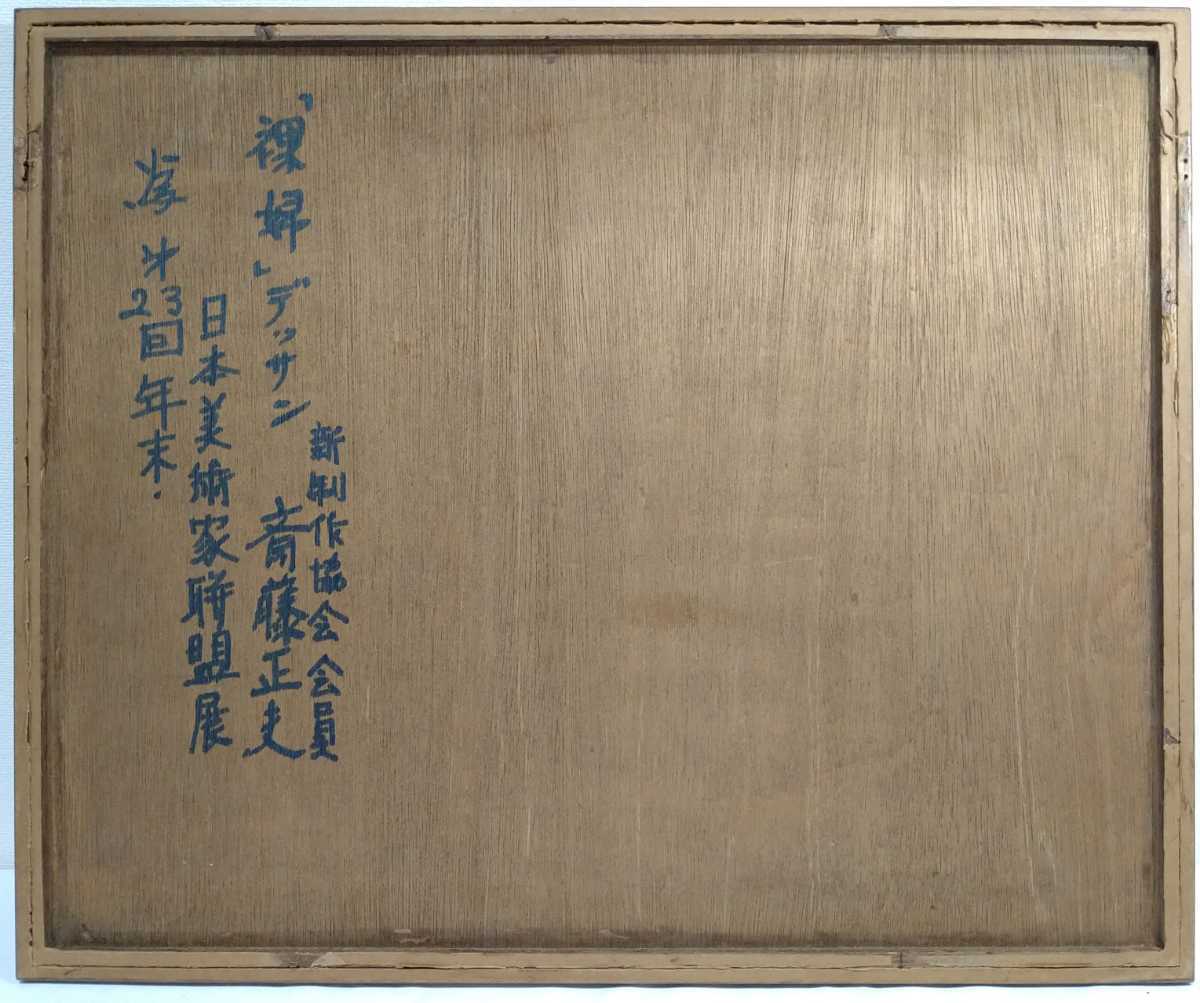 新制作協会会員
「裸婦」デッサン 斉藤正夫
日本美術家聯盟展
才23回年末.